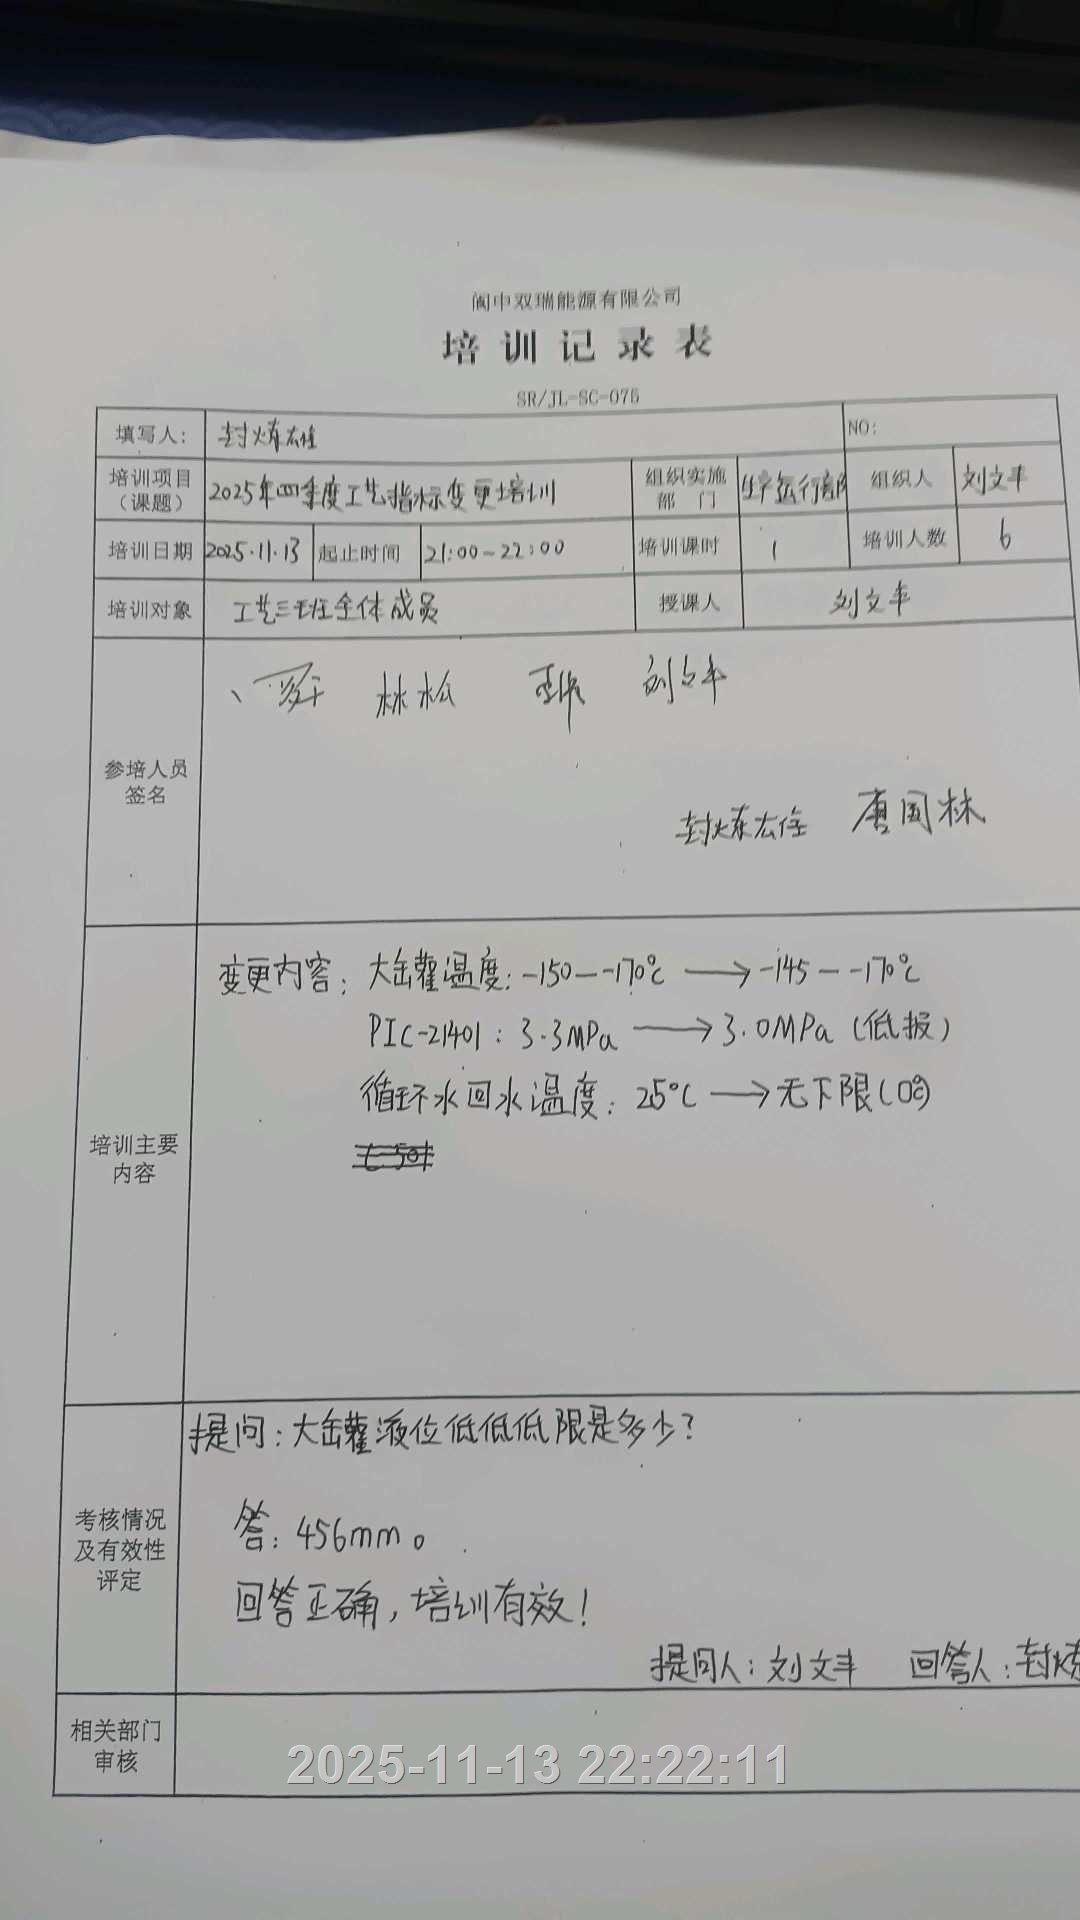 阆中双瑞能源有限公司
培训记录表
SR/JL-SC-075
填写人：
NO：
培训项目（课题） 2025年四季度工艺指标变更培训 组织实施部门 生产运行部 组织人 刘文丰
培训日期 2025.11.13 起止时间 21:00-22:00 培训课时 1 培训人数 6
培训对象 工艺三班全体成员 授课人 刘文丰
参培人员签名
林松 刘文丰
唐国林
培训主要内容
变更内容：大储罐温度：-150—-170℃ → -145—-170℃
PIC-21401：3.3MPa → 3.0MPa（低报）
循环水回水温度：25℃ → 无下限（0℃）
考核情况及有效性评定
提问：大储罐液位低低低限是多少？
答：456mm。
回答正确，培训有效！
提问人：刘文丰 回答人：封炼
相关部门审核
2025-11-13 22:22:11